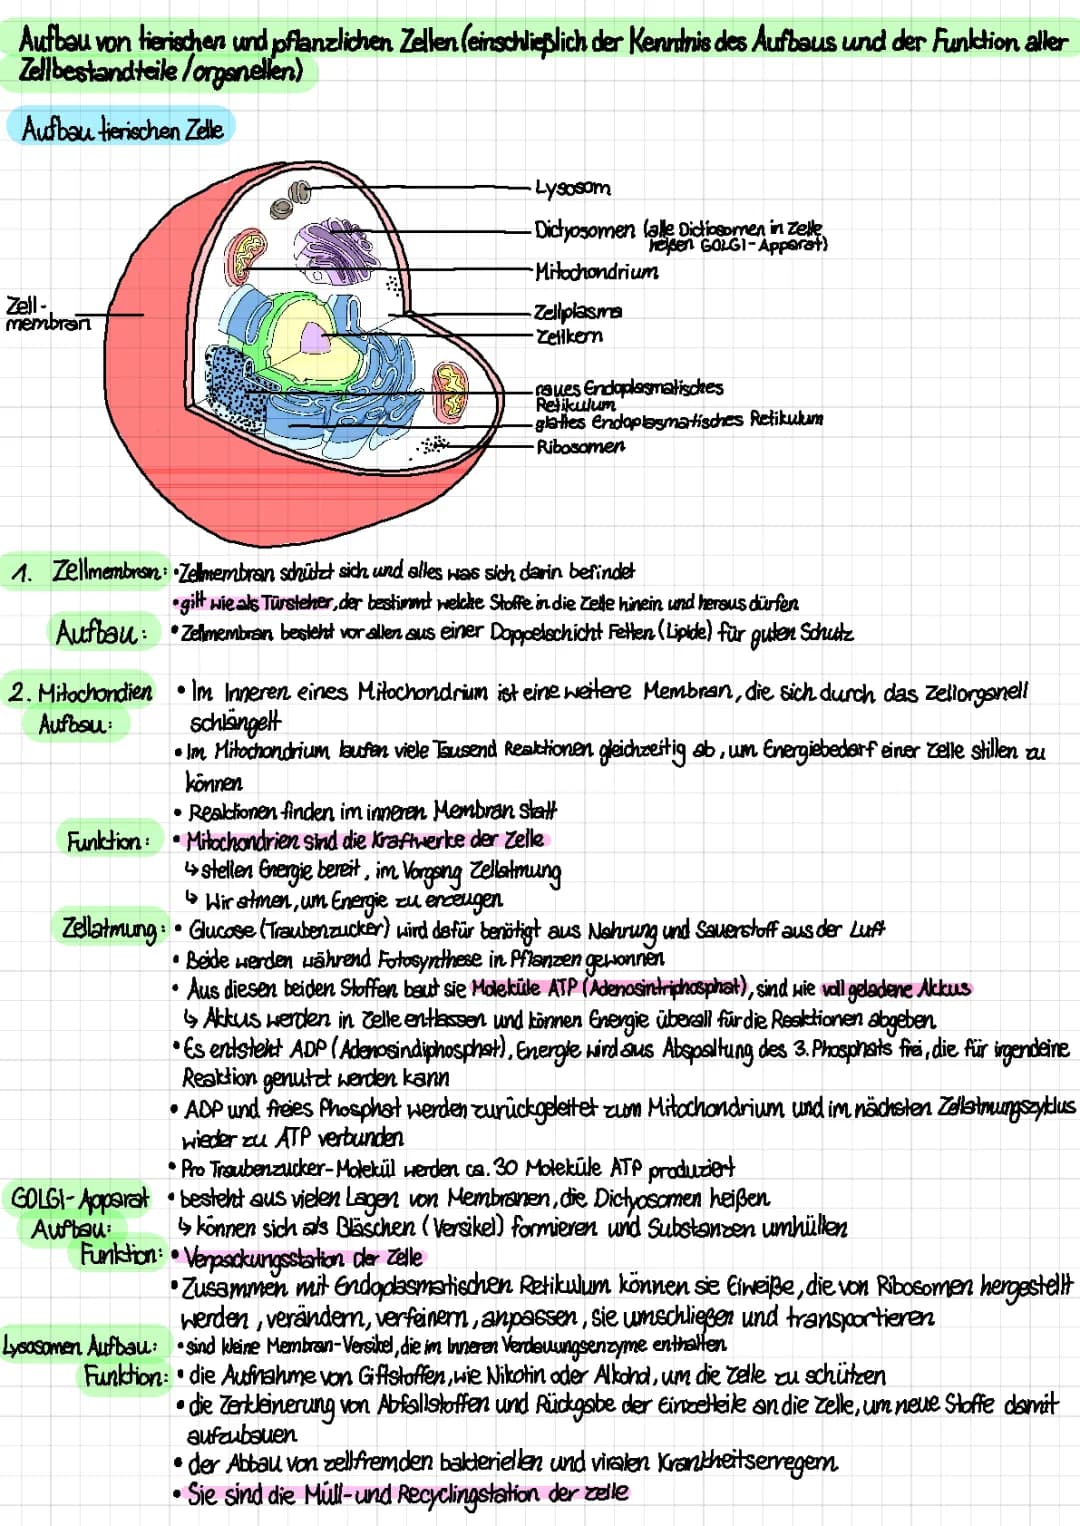 Aufbau von tierischen und pflanzlichen Zellen (einschließlich der Kenntnis des Aufbaus und der Funktion aller
Zellbestandteile /organellen)
Aufbau tierischen Zelle
Lysosom
Dictyosomen (alle Dictiosomen in Zelle
heißen GOLGI-Apparat)
Mitochondrium
Zell-
membran
Zellplasma
Zellkern
raues Endoplasmatisches
Retikulum
glattes Endoplasmatisches Retikulum
Ribosomen
1. Zellmembran: • Zellmembran schützt sich und alles was sich darin befindet
• gilt wie als Türsteher, der bestimmt welche Stoffe in die Zelle hinein und heraus dürfen
Aufbau: • Zellmembran besteht vor allen aus einer Doppelschicht Fetten (Lipide) für guten Schutz
2. Mitochondien • Im Inneren eines Mitochondrium ist eine weitere Membran, die sich durch das Zellorganell
Aufbau: schlängelt
• Im Mitochondrium laufen viele Tausend Reaktionen gleichzeitig ab, um Energiebedarf einer Zelle stillen zu
können
• Reaktionen finden im inneren Membran statt
Funktion: • Mitochondrien sind die Kraftwerke der Zelle
↳ stellen Energie bereit, im Vorgang Zellatmung
↳ Wir atmen, um Energie zu erzeugen
Zellatmung: • Glucose (Traubenzucker) wird dafür benötigt aus Nahrung und Sauerstoff aus der Luft
• Beide werden während Fotosynthese in Pflanzen gewonnen
• Aus diesen beiden Stoffen baut sie Moleküle ATP (Adenosintriphosphat), sind wie voll geladene Akkus
↳ Akkus werden in Zelle entlassen und können Energie überall für die Reaktionen abgeben
• Es entsteht ADP (Adenosindiphosphat), Energie wird aus Abspaltung des 3. Phosphats frei, die für irgendeine
Reaktion genutzt werden kann
• ADP und freies Phosphat werden zurückgeleitet zum Mitochondrium und im nächsten Zellatmungszyklus
wieder zu ATP verbunden
• Pro Traubenzucker-Molekül werden ca. 30 Moleküle ATP produziert
GOLGI-Apparat • besteht aus vielen Lagen von Membranen, die Dictyosomen heißen
Aufbau: ↳ können sich als Bläschen (Versikel) formieren und Substanzen umhüllen
Funktion: • Verpackungsstation der Zelle
• Zusammen mit Endoplasmatischen Retikulum können sie Eiweiße, die von Ribosomen hergestellt
werden, verändern, verfeinern, anpassen, sie umschließen und transportieren
Lysosomen Aufbau: • sind kleine Membran-Versikel, die im Inneren Verdauungsenzyme enthalten
Funktion: • die Aufnahme von Giftstoffen, wie Nikotin oder Alkohol, um die Zelle zu schützen
• die Zerkleinerung von Abfallstoffen und Rückgabe der Einzelteile an die Zelle, um neue Stoffe damit
aufzubauen
• der Abbau von zellfremden bakteriellen und viralen Krankheitserregern
• Sie sind die Müll- und Recyclingstation der Zelle